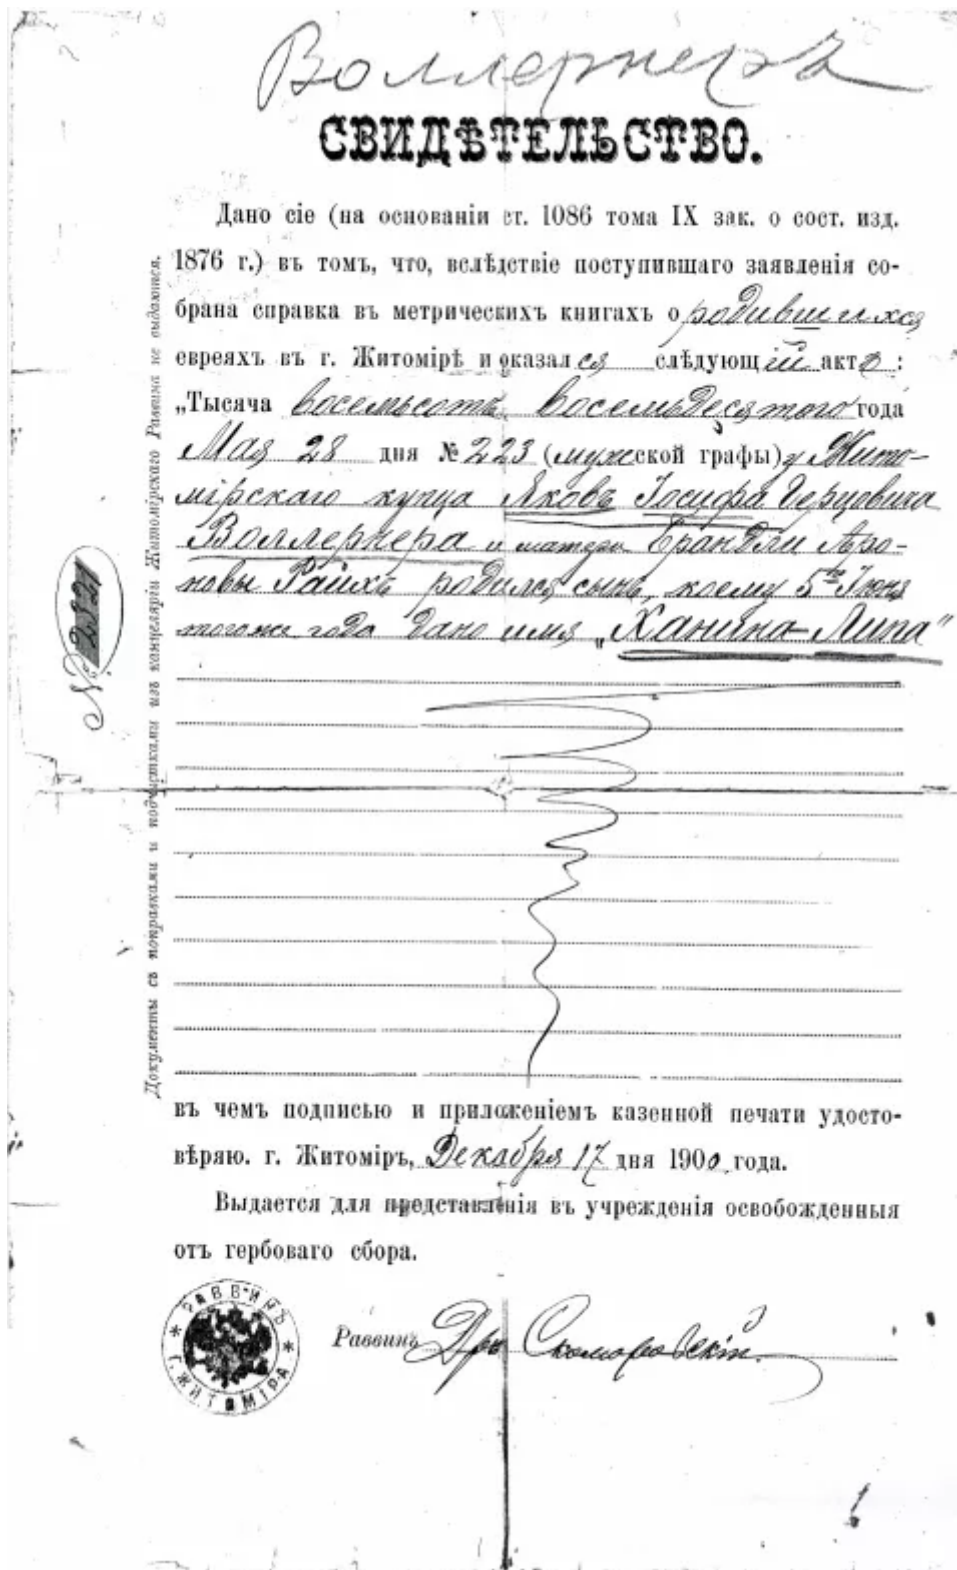 Воллернеръ
СВИДѢТЕЛЬСТВО.
Дано сіе (на основаніи ст. 1086 тома IX зак. о сост. изд.
1876 г.) въ томъ, что, вслѣдствіе поступившаго заявленія со-
брана справка въ метрическихъ книгахъ о родившихся
евреяхъ въ г. Житомірѣ и оказался слѣдующій актъ:
„Тысяча восемьсотъ восемьдесятого года
Мая 28 дня № 223 (мужеской графы) у Жито-
мірскаго купца Яковъ Іосифа Герцовича
Воллернера и матери Брандли Аро-
новы Райхъ родился сынъ, коему 5го Іюня
того же года дано имя „Ханина-Липа"
въ чемъ подписью и приложеніемъ казенной печати удосто-
вѣряю. г. Житоміръ, Декабря 17 дня 1900 года.
Выдается для представленія въ учрежденія освобожденныя
отъ гербоваго сбора.
Раввинъ Др Скоморовскій
РАВВИНЪ * Г. ЖИТОМІРА *
Документы съ поправками и подчистками изъ канцеляріи Житомірскаго Раввина не выдаются.
№